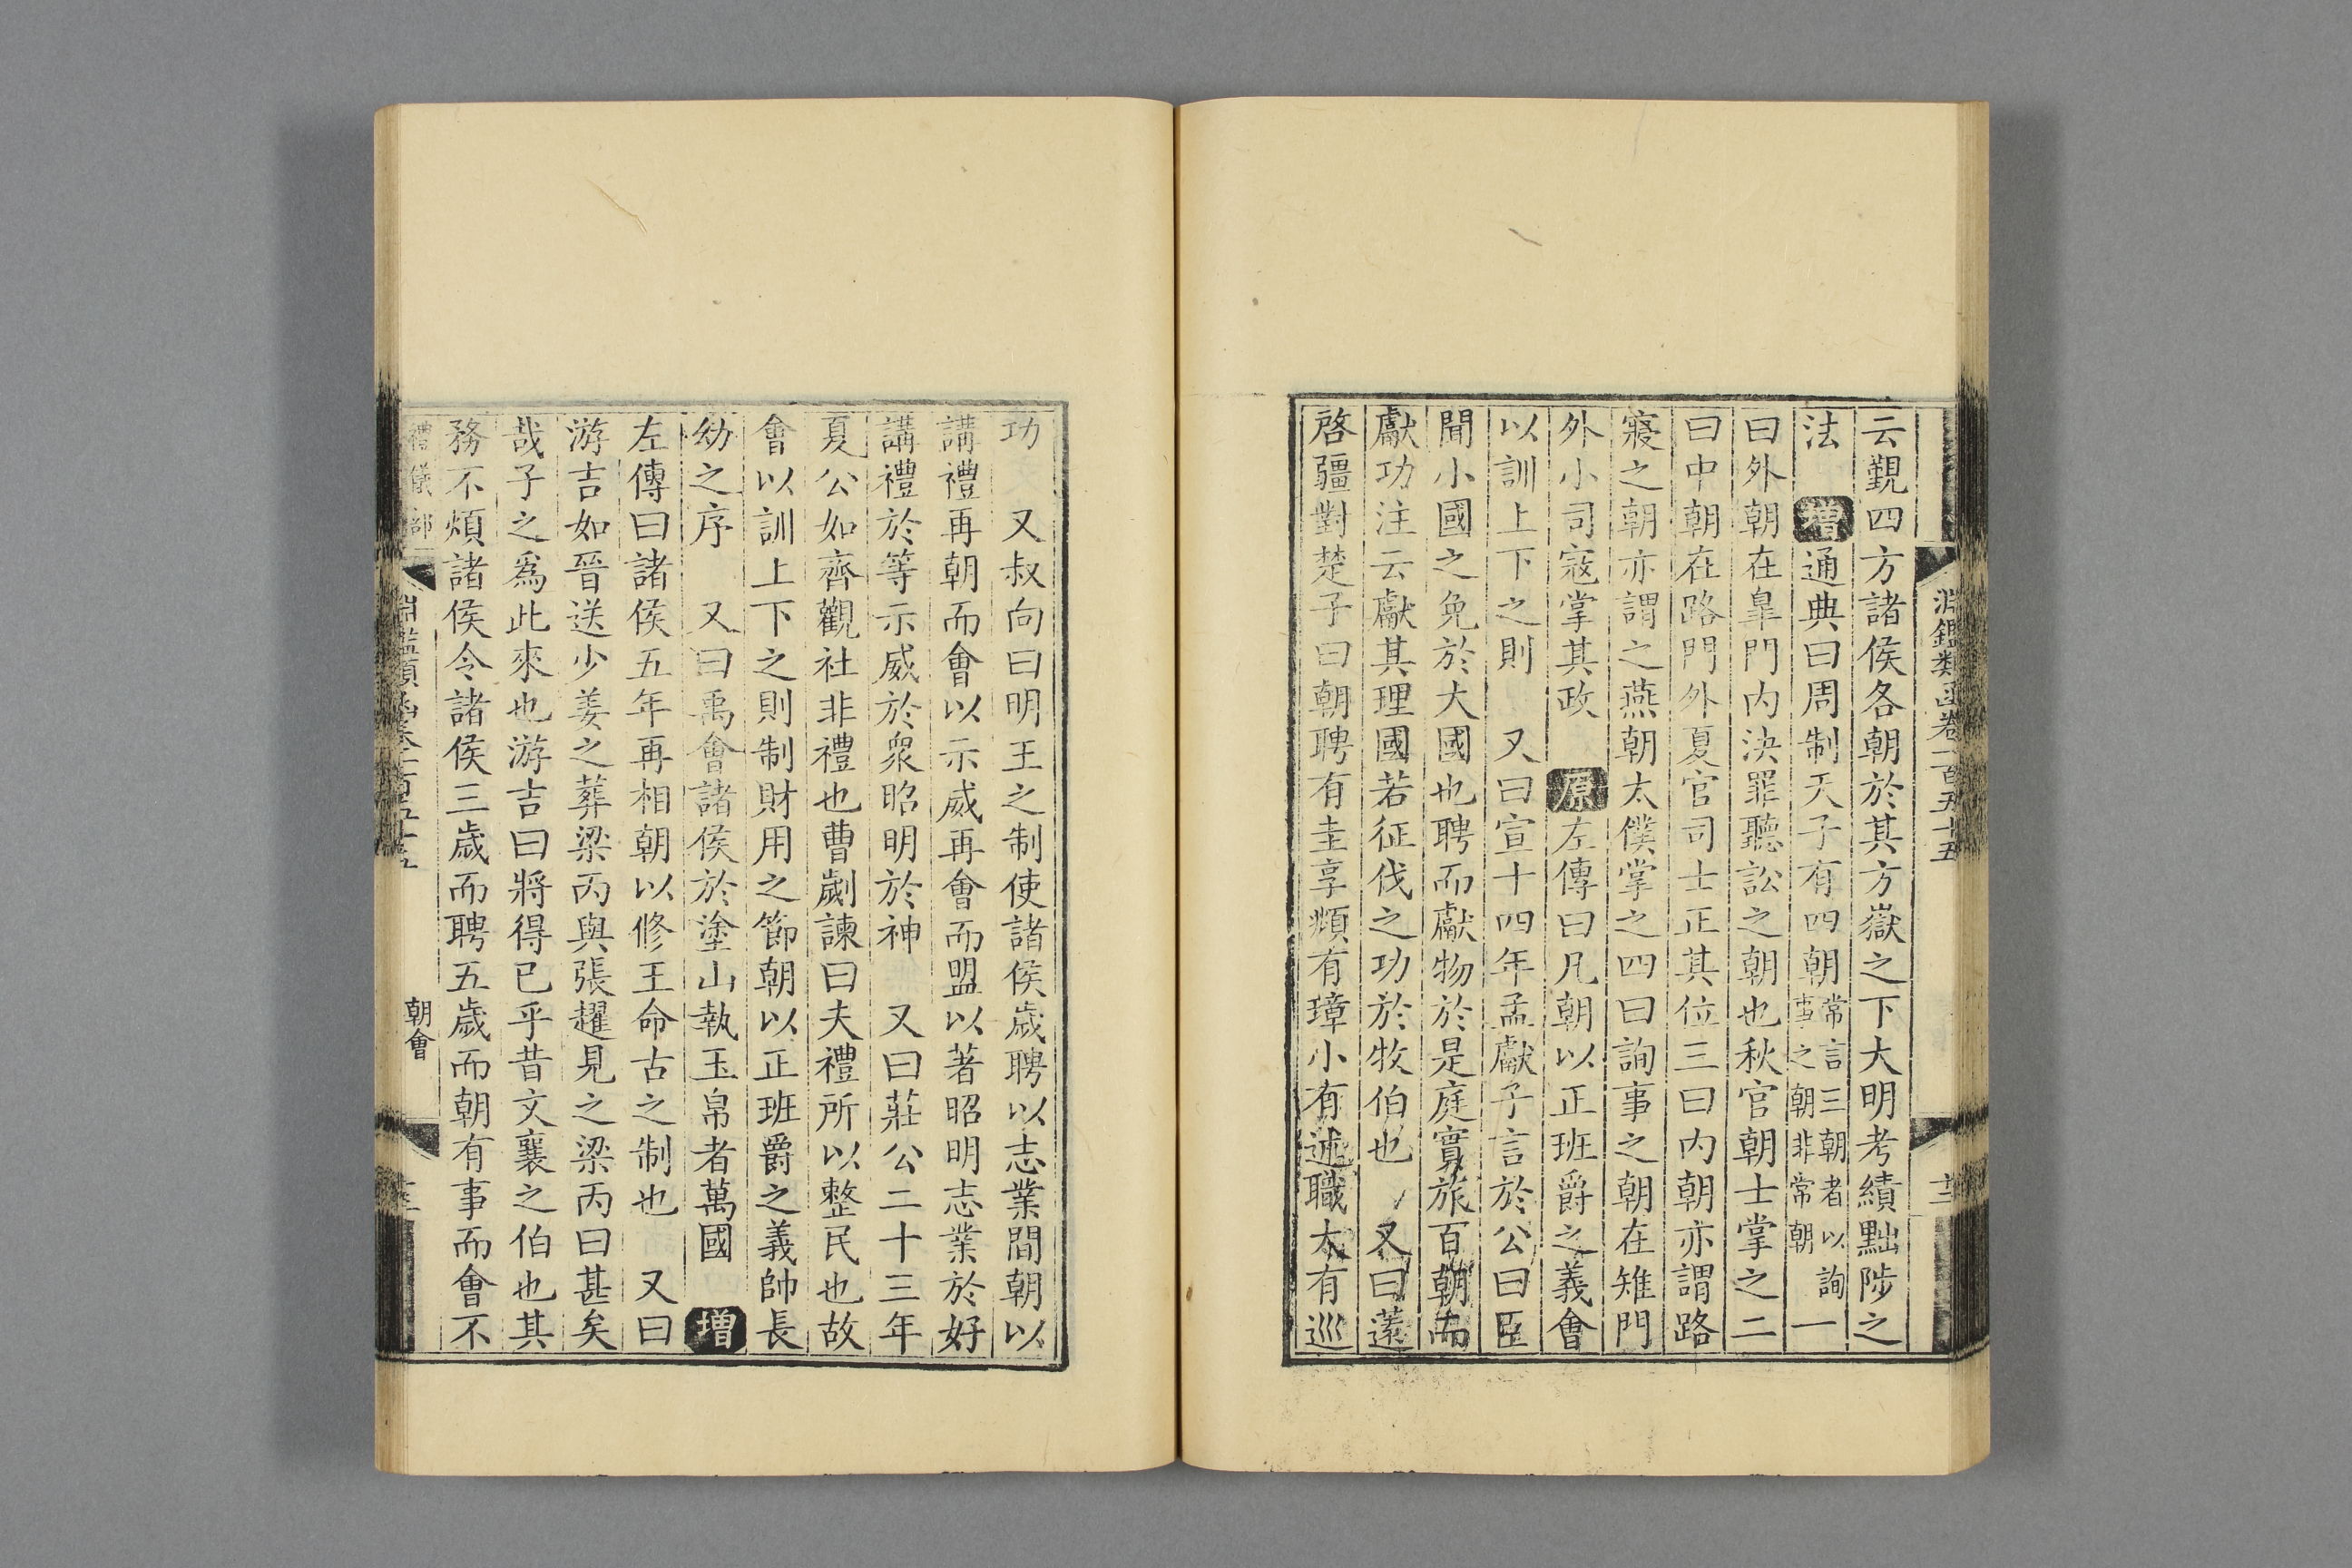 淵鑑類函卷一百五十五
十二
云覲四方諸侯各朝於其方嶽之下大明考績黜陟之
法 增通典曰周制天子有四朝常言三朝者以詢事之朝非常朝一
曰外朝在皐門内決罪聽訟之朝也秋官朝士掌之二
曰中朝在路門外夏官司士正其位三曰内朝亦謂路
寢之朝亦謂之燕朝太僕掌之四曰詢事之朝在雉門
外小司寇掌其政 原左傳曰凡朝以正班爵之義會
以訓上下之則 又曰宣十四年孟獻子言於公曰臣
聞小國之免於大國也聘而獻物於是庭實旅百朝而
獻功注云獻其理國若征伐之功於牧伯也 又曰薳
啓疆對楚子曰朝聘有圭享頫有璋小有述職大有巡
功 又叔向曰明王之制使諸侯歲聘以志業間朝以
講禮再朝而會以示威再會而盟以著昭明志業於好
講禮於等示威於衆昭明於神 又曰莊公二十三年
夏公如齊觀社非禮也曹劌諫曰夫禮所以整民也故
會以訓上下之則制財用之節朝以正班爵之義帥長
幼之序 又曰禹會諸侯於塗山執玉帛者萬國 增
左傳曰諸侯五年再相朝以修王命古之制也 又曰
游吉如晉送少姜之葬梁丙與張趯見之梁丙曰甚矣
哉子之爲此來也游吉曰將得已乎昔文襄之伯也其
務不煩諸侯令諸侯三歲而聘五歲而朝有事而會不
禮儀部
淵鑑類函卷一百五十五
朝會